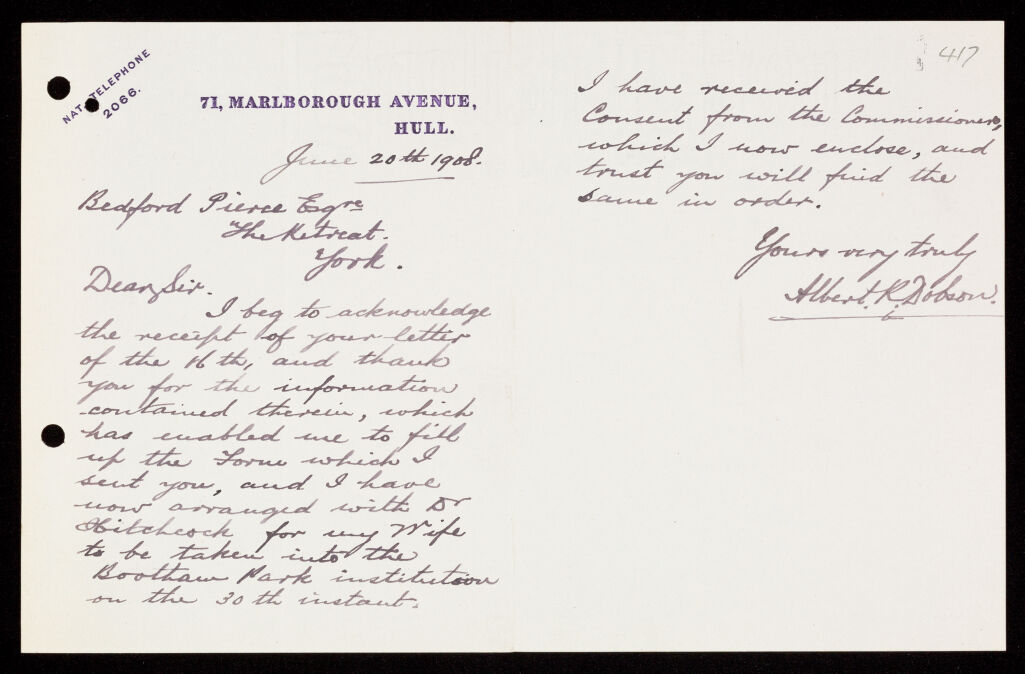 NAT. TELEPHONE
2066.
71, MARLBOROUGH AVENUE,
HULL.
June 20th 1908.
Bedford Pierce Esqre
The Retreat.
York.
Dear Sir.
I beg to acknowledge
the receipt of your letter
of the 16th, and thank
you for the information
contained therein, which
has enabled me to fill
up the Form which I
sent you, and I have
now arranged with Dr
Hitchcock for my Wife
to be taken into the
Bootham Park institution
on the 30th instant.
417
I have received the
Consent from the Commissioners,
which I now enclose, and
trust you will find the
same in order.
Yours very truly
Albert. K. Dobson.